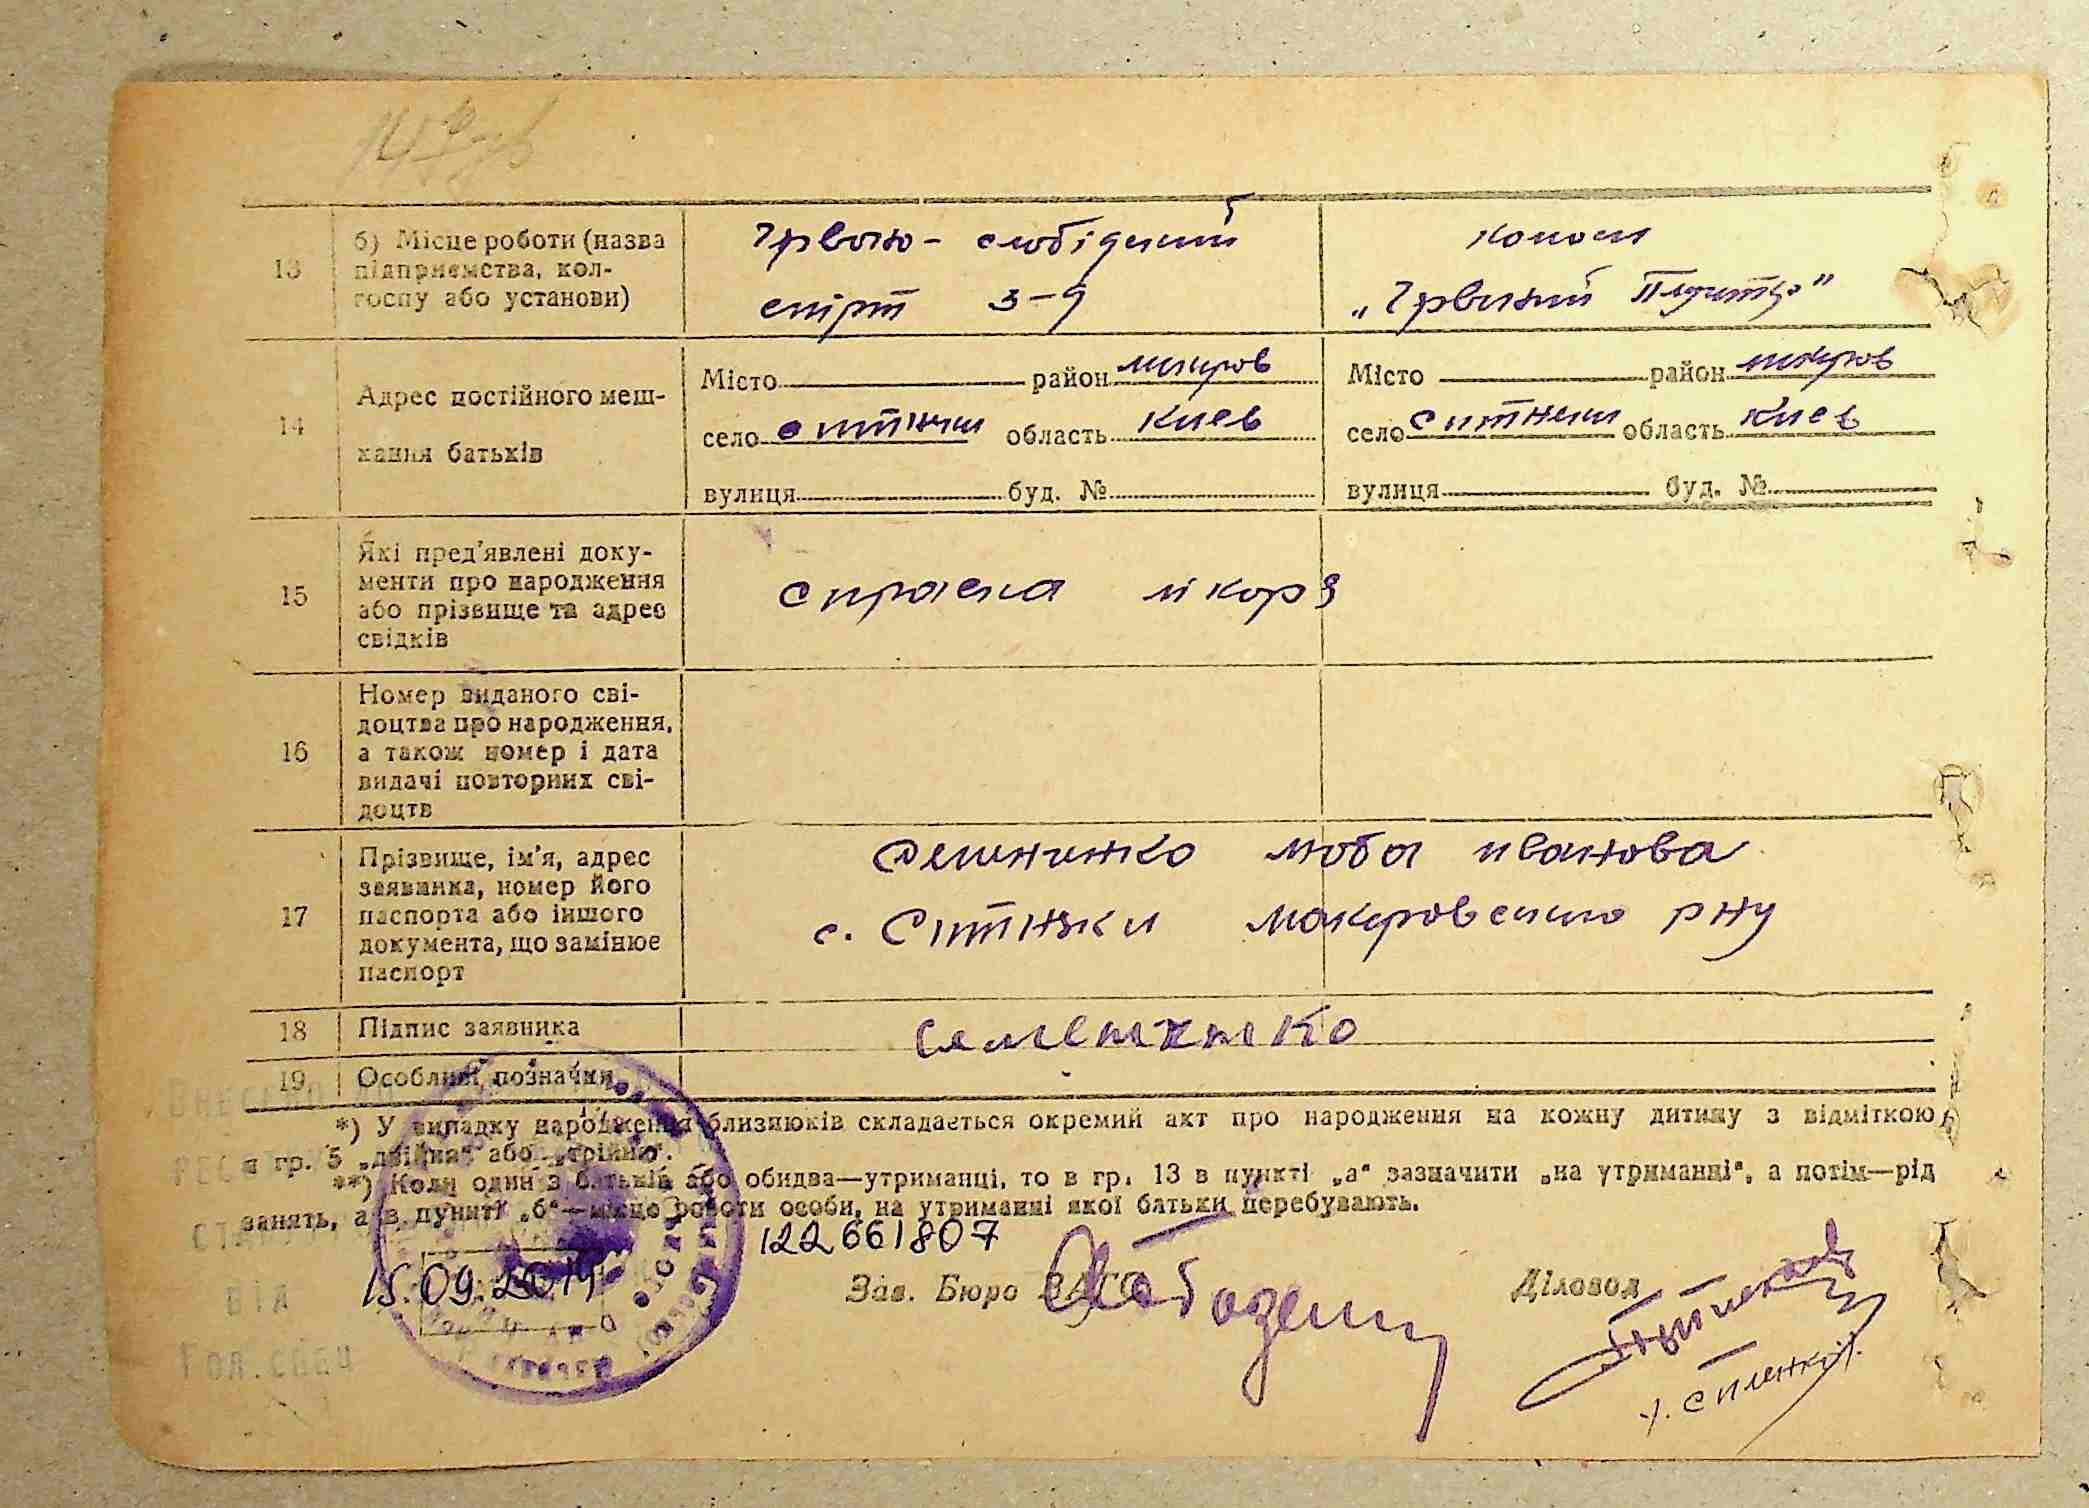 13
б) Місце роботи (назва
підприємства, кол-
госпу або установи)
Червоно- слобідський
спірт з-д
колгосп
14
Адрес постійного меш-
кання батьків
Місто район макаров
село ситняки область Киев
вулиця буд. №
Місто район макаров
село ситняки область Киев
вулиця буд. №
15
Які пред'явлені доку-
менти про народження
або прізвище та адрес
свідків
Справка лікоря
16
Номер виданого сві-
доцтва про народження,
а також номер і дата
видачі повторних сві-
доцтв
17
Прізвище, ім'я, адрес
заявника, номер його
паспорта або іншого
документа, що замінює
паспорт
люба ивановa
с. Ситняки Макаровского рну
18
Підпис заявника
19
Особливі позначки
*) У випадку народження близнюків складається окремий акт про народження на кожну дитину з відміткою
в гр. 5 „двійня" або „трійня".
**) Коли один з батьків або обидва—утриманці, то в гр. 13 в пункті „а" зазначити „на утриманні", а потім—рід
занять, а в пункті „б"—місце роботи особи, на утриманні якої батьки перебувають.
122661807
15.09.2014
Зав. Бюро ЗАГС
Діловод
ВІД